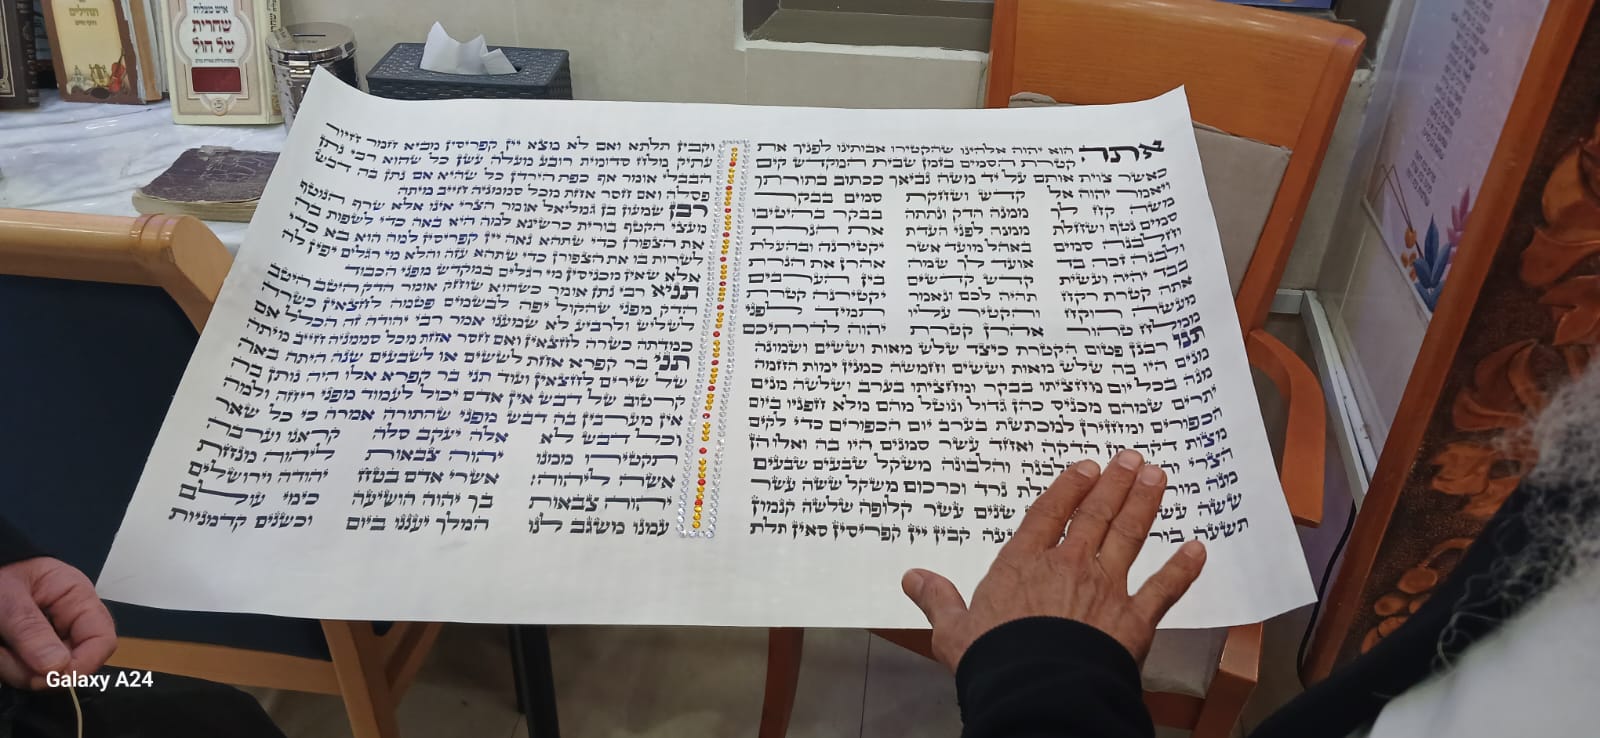 אתה הוא יהוה אלהינו שהקטירו אבותינו לפניך את
קטרת הסמים בזמן שבית המקדש קים
כאשר צוית אותם על יד משה נביאך ככתוב בתורתך
ויאמר יהוה אל קדש ושחקת סמים בבקר
משה קח לך ממנה הדק ונתתה בבקר בהיטיבו
סמים נטף ושחלת ממנה לפני העדת את הנרת
וחלבנה סמים באהל מועד אשר יקטירנה ובהעלת
ולבנה זכה בד אועד לך שמה אהרן את הנרת
בבד יהיה ועשית קדש קדשים בין הערבים
אתה קטרת רקח תהיה לכם ונאמר יקטירנה קטרת
מעשה רוקח והקטיר עליו תמיד לפני
ממלח טהור אהרן קטרת יהוה לדרתיכם
תנו רבנן פטום הקטרת כיצד שלש מאות וששים ושמונה
מנים היו בה שלש מאות וששים וחמשה כמנין ימות החמה
מנה בכל יום מחציתו בבקר ומחציתו בערב ושלשה מנים
יתרים שמהם מכניס כהן גדול ונוטל מהם מלא חפניו ביום
הכפורים ומחזירן למכתשת בערב יום הכפורים כדי לקים
מצות דקה מן הדקה ואחד עשר סמנים היו בה ואלו הן
הצרי לבנה והלבונה משקל שבעים שבעים
מנה מור לת נרד וכרכום משקל ששה עשר
ששה עשר שנים עשר קלופה שלשה קנמון
תשעה בור קבין יין קפריסין סאין תלת
וקבין תלתא ואם לא מצא יין קפריסין מביא חמר חזיור
עתיק מלח סדומית רובע מעלה עשן כל שהוא רבי נתן
הבבלי אומר אף כפת הירדן כל שהיא אם נתן בה דבש
פסלה ואם חסר אחת מכל סממניה חייב מיתה
רבן שמעון בן גמליאל אומר הצרי אינו אלא שרף הנוטף
מעצי הקטף בורית כרשינא למה היא באה כדי לשפות בה
את הצפורן כדי שתהא נאה יין קפריסין למה הוא בא כדי
לשרות בו את הצפורן כדי שתהא עזה והלא מי רגלים יפין לה
אלא שאין מכניסין מי רגלים במקדש מפני הכבוד
תניא רבי נתן אומר כשהוא שוחק אומר הדק היטב היטב
הדק מפני שהקול יפה לבשמים פטמה לחצאין כשרה
לשליש ולרביע לא שמענו אמר רבי יהודה זה הכלל אם
כמדתה כשרה לחצאין ואם חסר אחת מכל סממניה חייב מיתה
תני בר קפרא אחת לששים או לשבעים שנה היתה באה
של שירים לחצאין ועוד תני בר קפרא אלו היה נותן בה
קרטוב של דבש אין אדם יכול לעמוד מפני ריחה ולמה
אין מערבין בה דבש מפני שהתורה אמרה כי כל שאר
וכל דבש לא אלה יעקב סלה קראנו וערבה
תקטירו ממנו יהוה צבאות ליהוה מנחת
אשה ליהוה: אשרי אדם בטח יהודה וירושלים
יהוה צבאות בך יהוה הושיעה כימי עולם
עמנו משגב לנו המלך יעננו ביום וכשנים קדמניות
שחרית
של חול
Galaxy A24